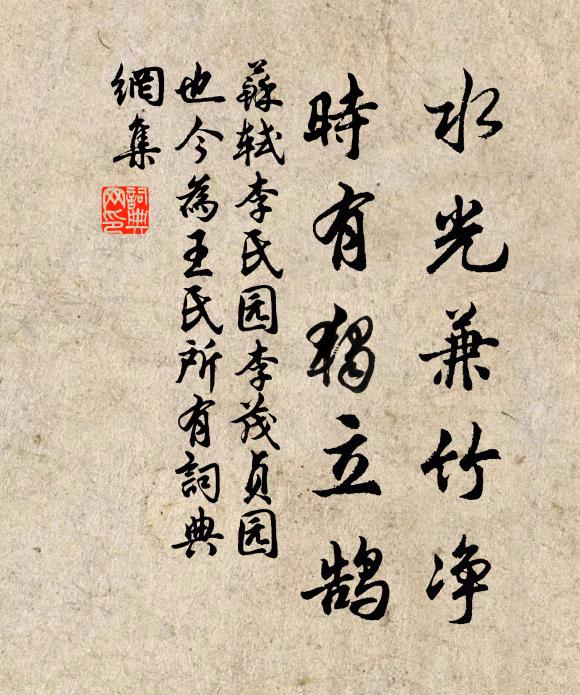 水光兼竹净
時有獨立鵠
蘇軾李氏园李茂貞园
也今為王氏所有詞典
網集
詞典
网印